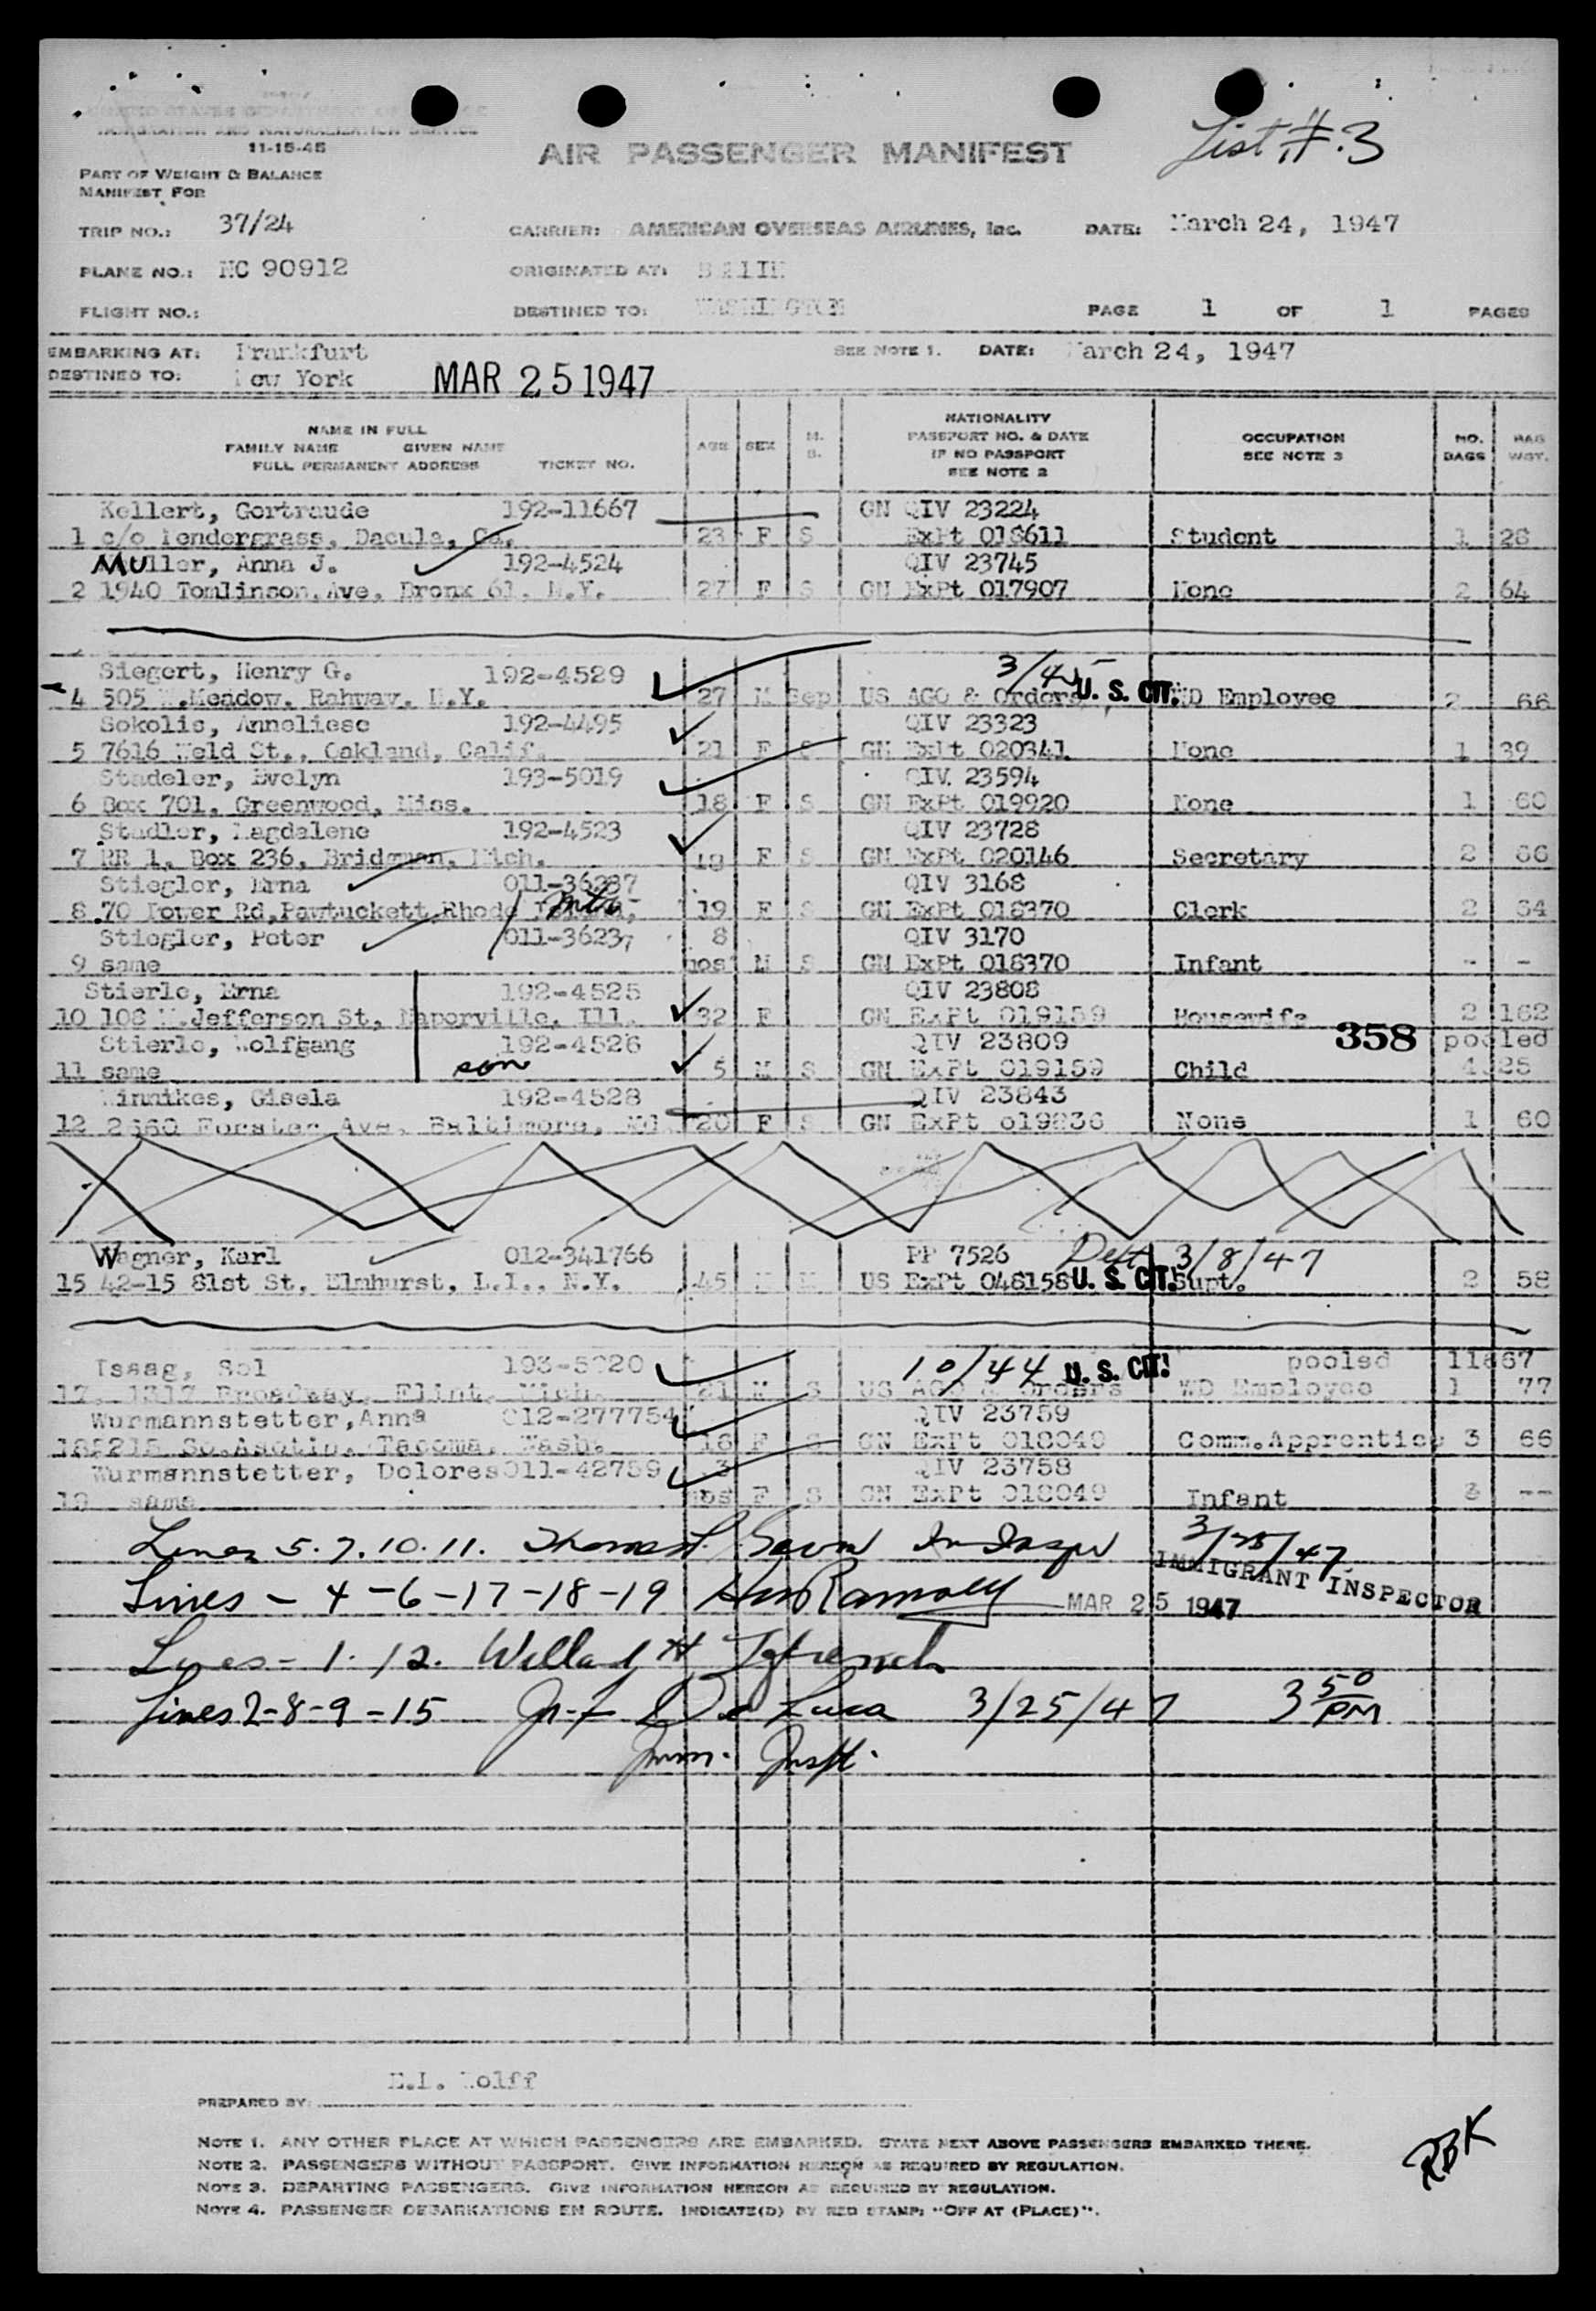 11-15-45
AIR PASSENGER MANIFEST
List #3
PART OF WEIGHT & BALANCE
MANIFEST FOR
TRIP NO.: 37/24 CARRIER: AMERICAN OVERSEAS AIRLINES, Inc. DATE: March 24, 1947
PLANE NO.: NC 90912 ORIGINATED AT:
FLIGHT NO.: DESTINED TO: WASHINGTON PAGE 1 OF 1 PAGES
EMBARKING AT: Frankfurt SEE NOTE 1. DATE: March 24, 1947
DESTINED TO: New York MAR 25 1947
NAME IN FULL
FAMILY NAME GIVEN NAME
FULL PERMANENT ADDRESS TICKET NO.
AGE SEX M. S.
NATIONALITY
PASSPORT NO. & DATE
IF NO PASSPORT
SEE NOTE 2
OCCUPATION
SEE NOTE 3
NO. BAGS
BAG WGT.
Kellert, Gertraude 192-11667 GN QIV 23224
1 c/o Pendergrass, Dacula, Ga. 23 F S ExPt 018611 Student 1 28
Muller, Anna J. 192-4524 QIV 23745
2 1940 Tomlinson Ave, Bronx 61, N.Y. 27 F S GN ExPt 017907 None 2 64
Siegert, Henry G. 192-4529 3/45
4 505 W.Meadow, Rahway, N.Y. 27 M Sep US AGO & Orders U. S. CIT. WD Employee 2 66
Sokolis, Anneliese 192-4495 QIV 23323
5 7616 Weld St., Oakland, Calif. 21 F S GN ExPt 020341 None 1 39
Stadeler, Evelyn 193-5019 QIV 23594
6 Box 701, Greenwood, Miss. 18 F S GN ExPt 019920 None 1 60
Stadler, Magdalene 192-4523 QIV 23728
7 RR 1, Box 236, Bridgman, Mich. F S GN ExPt 020146 Secretary 2 66
Stiegler, Erna 011-36237 QIV 3168
8 70 Power Rd, Pawtuckett, Rhode 19 F S GN ExPt 018370 Clerk 2 64
Stiegler, Peter 011-36237 8 QIV 3170
9 same mos M S GN ExPt 018370 Infant - -
Stierle, Erna 192-4525 QIV 23808
10 108 W.Jefferson St, Naperville, Ill. 32 F GN ExPt 019159 Housewife 2 162
Stierle, Wolfgang 192-4526 QIV 23809 358 pooled
11 same son 5 M S GN ExPt 019159 Child 4 25
Winnikes, Gisela 192-4528 QIV 23843
12 Forster Ave. Baltimore, Md 20 F S GN ExPt 019236 None 1 60
Wagner, Karl 012-341766 PP 7526 Dept 3/8/47
15 42-15 81st St, Elmhurst, L.I., N.Y. 45 M M US ExPt 048158 U. S. CIT. Supt. 2 58
Isaag, Sol 193-5020 10/44 U. S. CIT. pooled
17 1317 Broadway, Flint, Mich. 21 M S US AGO & Orders WD Employee 1 77
Wurmannstetter, Anna 012-277754 QIV 23759
18 So. Asotin, Tacoma, Wash. 18 F S GN ExPt 018049 Comm. Apprentice 3 66
Wurmannstetter, Dolores 011-42759 3 QIV 23758
19 same mos F S GN ExPt 018049 Infant 3 --
Lines 5. 7. 10. 11. 3/25/47
IMMIGRANT INSPECTOR
Lines - 4 - 6 - 17 - 18 - 19 MAR 25 1947
Lines - 1. 12. Willard H
Lines 2-8-9-15 De Luca 3/25/47 3 50 PM
Imm. Inspt.
PREPARED BY: Wolff
NOTE 1. ANY OTHER PLACE AT WHICH PASSENGERS ARE EMBARKED. STATE NEXT ABOVE PASSENGERS EMBARKED THERE.
NOTE 2. PASSENGERS WITHOUT PASSPORT. GIVE INFORMATION HEREON AS REQUIRED BY REGULATION.
NOTE 3. DEPARTING PASSENGERS. GIVE INFORMATION HEREON AS REQUIRED BY REGULATION.
NOTE 4. PASSENGER DEBARKATIONS EN ROUTE. INDICATE(D) BY RED STAMP: "OFF AT (PLACE)".
RBK